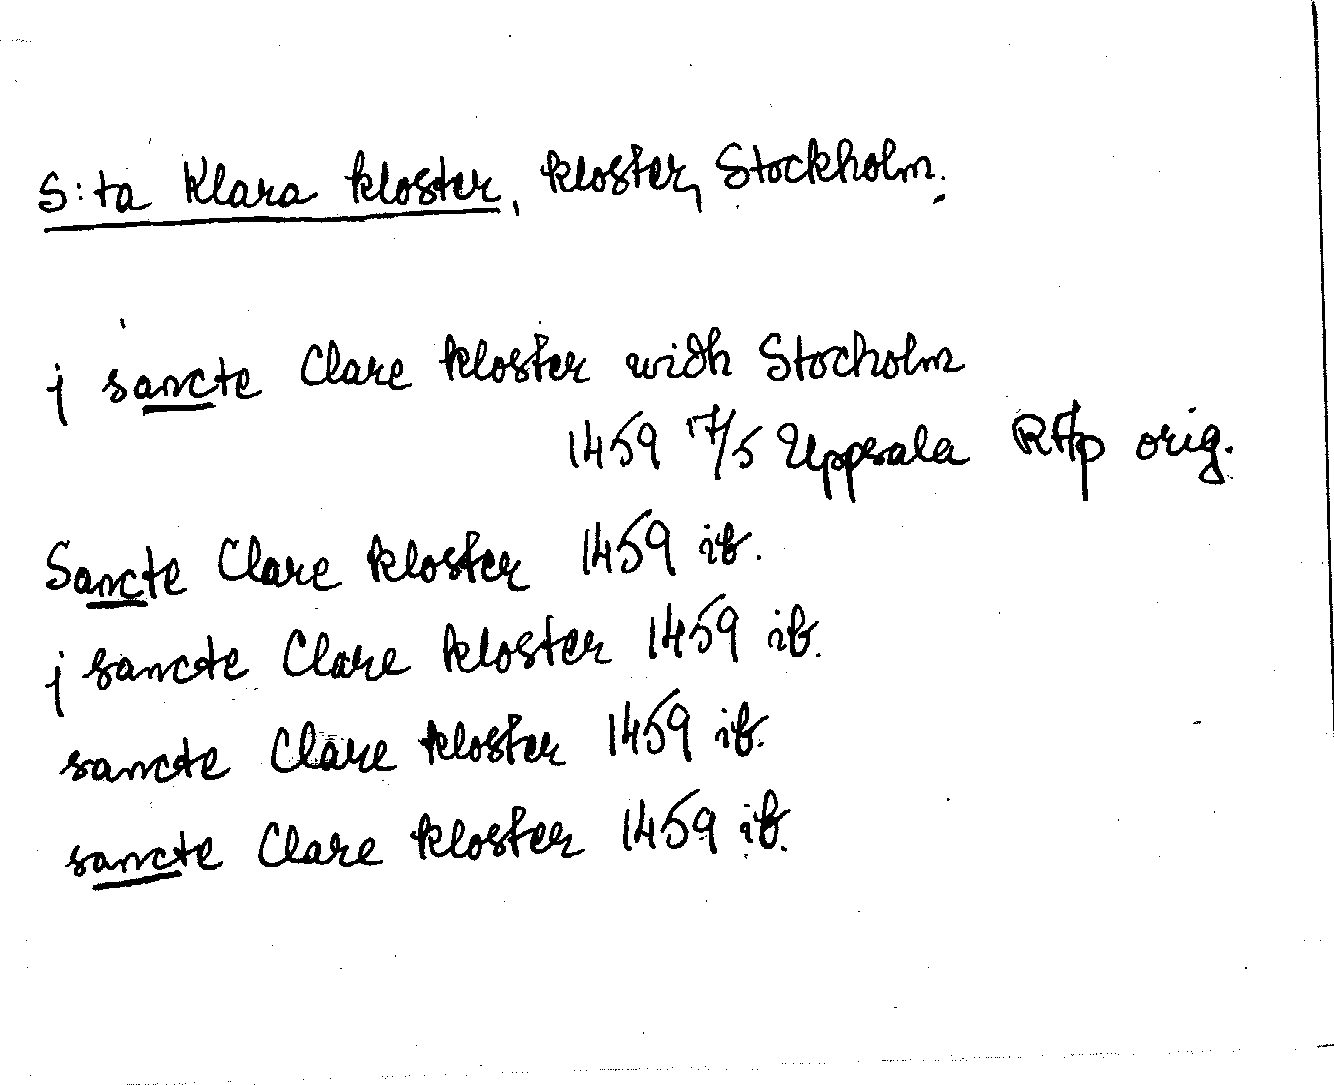 S:ta Klara kloster, kloster, Stockholm.
j sancte Clare kloster widh Stocholm
1459 17/5 Uppsala RAp orig.
Sancte Clare kloster 1459 ib.
j sancte Clare kloster 1459 ib.
sancte Clare kloster 1459 ib.
sancte Clare kloster 1459 ib.